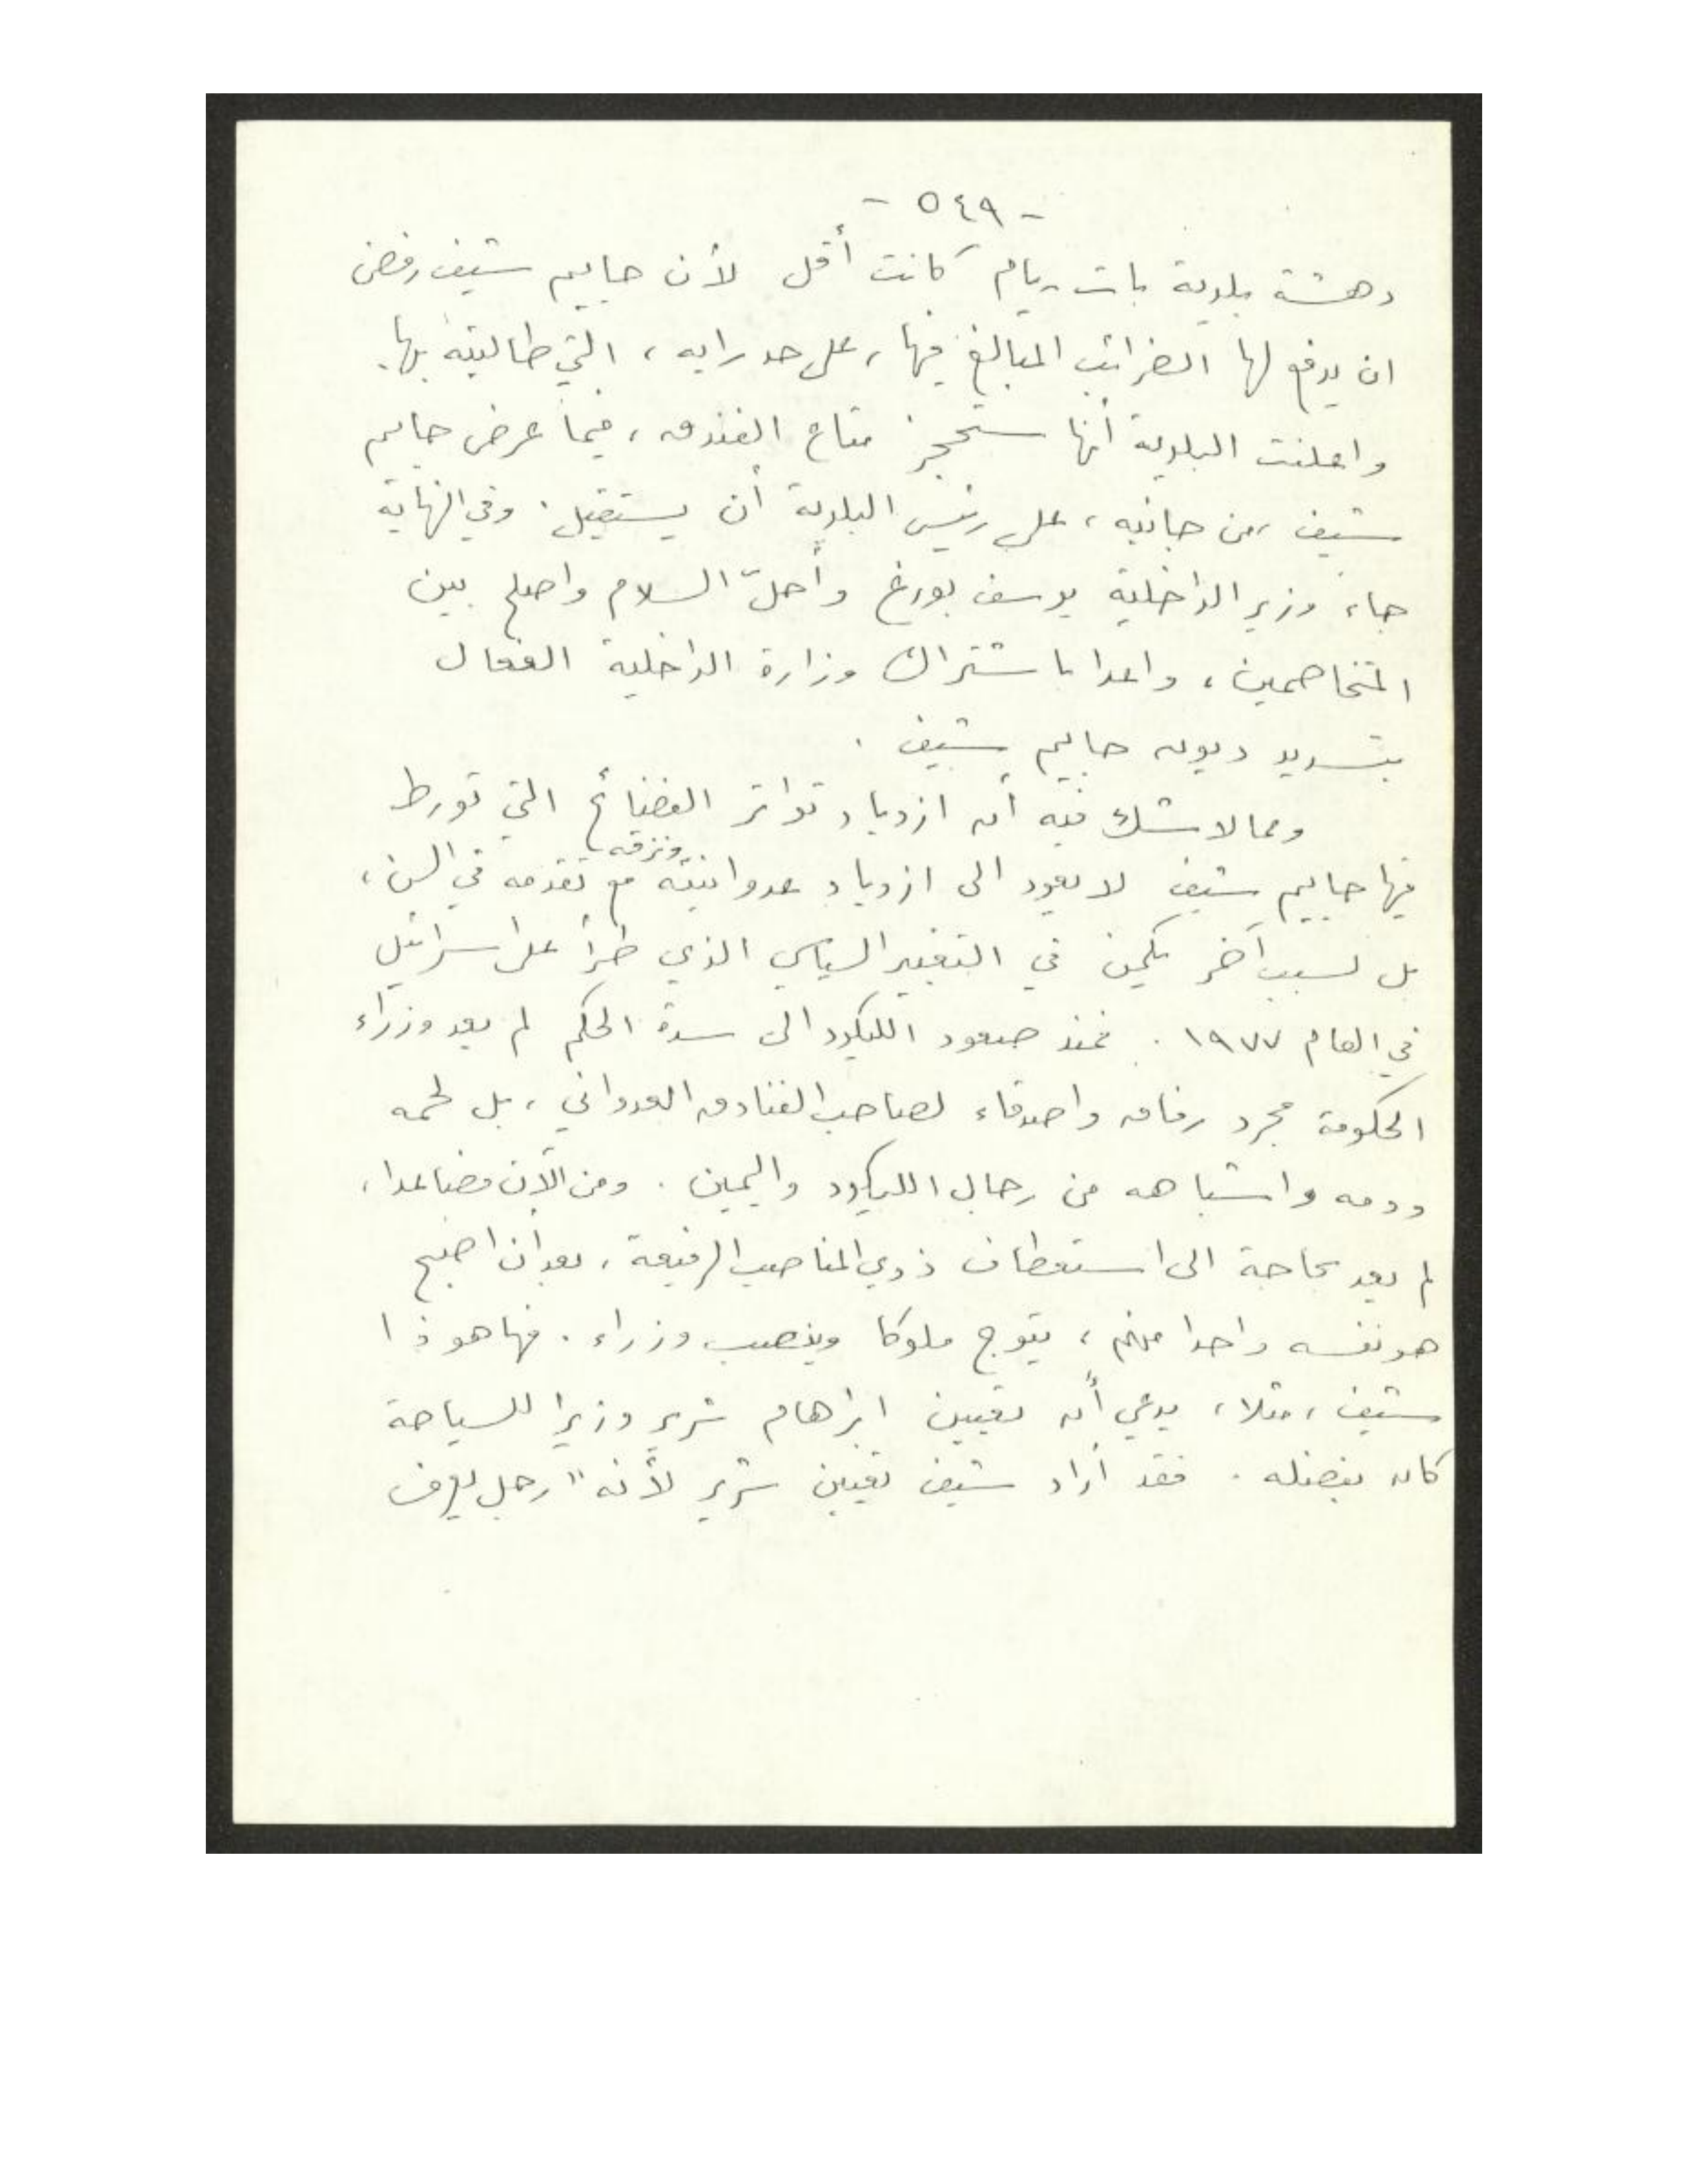 - ٥٤٩ -
دهشة بلدية بات - يام كانت أقل لأن حاييم شيف رفض
ان يدفع لها الضرائب المبالغ فيها، على حد رايه، التي طالبته بها.
واعلنت البلدية أنها ستحجز متاع الفندق، فيما عرض حاييم
شيف، من جانبه، على رئيس البلدية أن يستقيل. وفي النهاية
جاء وزير الداخلية يوسف بورغ وأحلّ السلام واصلح بين
المتخاصمين، واعدا باشتراك وزارة الداخلية الفعال
بتسديد ديون حاييم شيف.
ومما لا شك فيه أن ازدياد تواتر الفضائح التي تورط
فيها حاييم شيف لا يعود الى ازدياد عدوانيته ونزقه مع تقدمه في السن،
بل لسبب آخر يكمن في التغيير السياسي الذي طرأ على اسرائيل
في العام ١٩٧٧. فمنذ صعود الليكود الى سدة الحكم لم يعد وزراء
الحكومة مجرد رفاق واصدقاء لصاحب الفنادق العدواني، بل لحمه
ودمه واشباهه من رجال الليكود واليمين. ومن الآن فصاعدا،
لم يعد بحاجة الى استعطاف ذوي المناصب الرفيعة، بعد أن اصبح
هو نفسه واحدا منهم، يتوج ملوكا وينصب وزراء. فها هو ذا
شيف، مثلا، يدعي أن تعيين ابراهام شرير وزيرا للسياحة
كان بفضله. فقد أراد شيف تعيين شرير لأنه "رجل يعرف